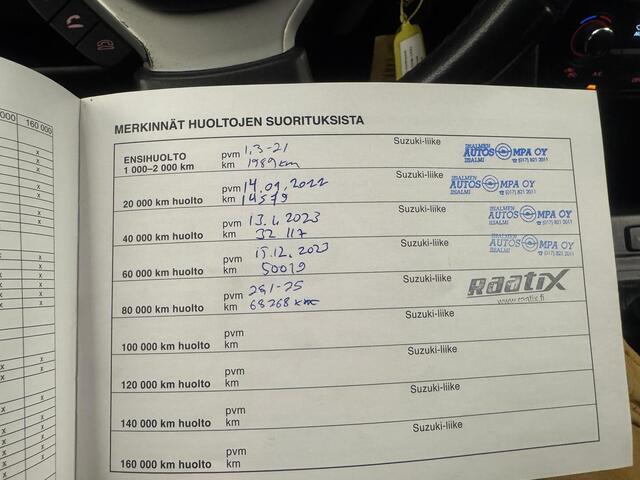 000 160 000
MERKINNÄT HUOLTOJEN SUORITUKSISTA
ENSIHUOLTO pvm 1.3-21 Suzuki-liike
1 000–2 000 km km 1989 km
IISALMEN
AUTOSOMPA OY
IISALMI ☎ (017) 821 2011
pvm 14.09.2022 Suzuki-liike
20 000 km huolto km 14579
IISALMEN
AUTOSOMPA OY
IISALMI ☎ (017) 821 2011
pvm 13.6.2023 Suzuki-liike
40 000 km huolto km 32 117
IISALMEN
AUTOSOMPA OY
IISALMI ☎ (017) 821 2011
pvm 15.12.2023 Suzuki-liike
60 000 km huolto km 50019
IISALMEN
AUTOSOMPA OY
IISALMI ☎ (017) 821 2011
pvm 28.1-25 Suzuki-liike
80 000 km huolto km 68268 km
RaatiX
www.raatix.fi
pvm Suzuki-liike
100 000 km huolto km
pvm Suzuki-liike
120 000 km huolto km
pvm Suzuki-liike
140 000 km huolto km
pvm Suzuki-liike
160 000 km huolto km